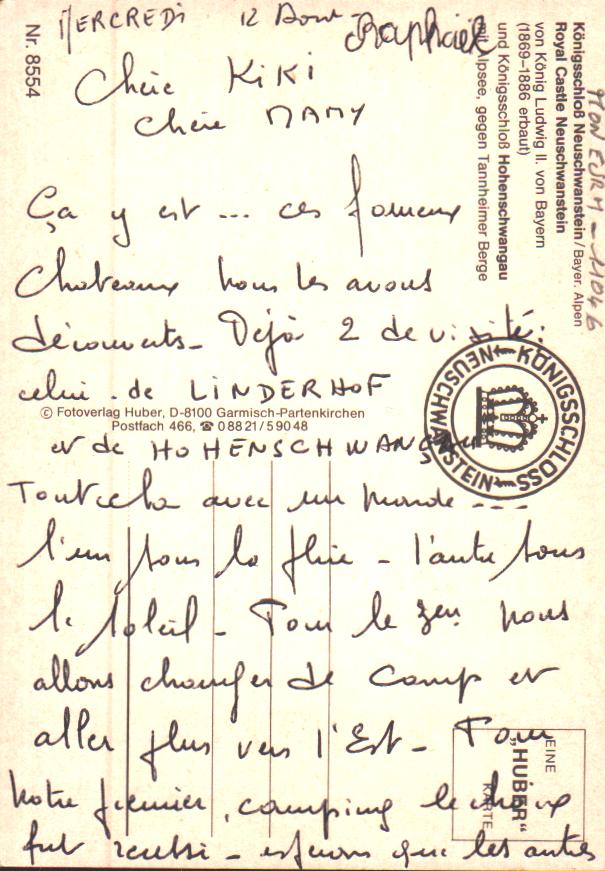 MERCREDI 12 Aout
Raphaël
Chère KIKI
Chère MAMY
Ça y est ... ces fameux
Chateaux nous les avons
découverts - Déjà 2 de visités:
celui de LINDERHOF
et de HOHENSCHWANGAU
Tout cela avec un monde ---
l'un sous la pluie - l'autre sous
le soleil - Pour le 3eu nous
allons changer de camp et
aller plus vers l'Est - Pour
notre premier camping le choix
fut réussi - espérons que les autres
Nr. 8554
Königsschloß Neuschwanstein/Bayer. Alpen
Royal Castle Neuschwanstein
von König Ludwig II. von Bayern
(1869–1886 erbaut)
und Königsschloß Hohenschwangau
Alpsee, gegen Tannheimer Berge
© Fotoverlag Huber, D-8100 Garmisch-Partenkirchen
Postfach 466, ☎ 08821/59048
KÖNIGSSCHLOSS NEUSCHWANSTEIN
EINE
„HUBER"
KARTE